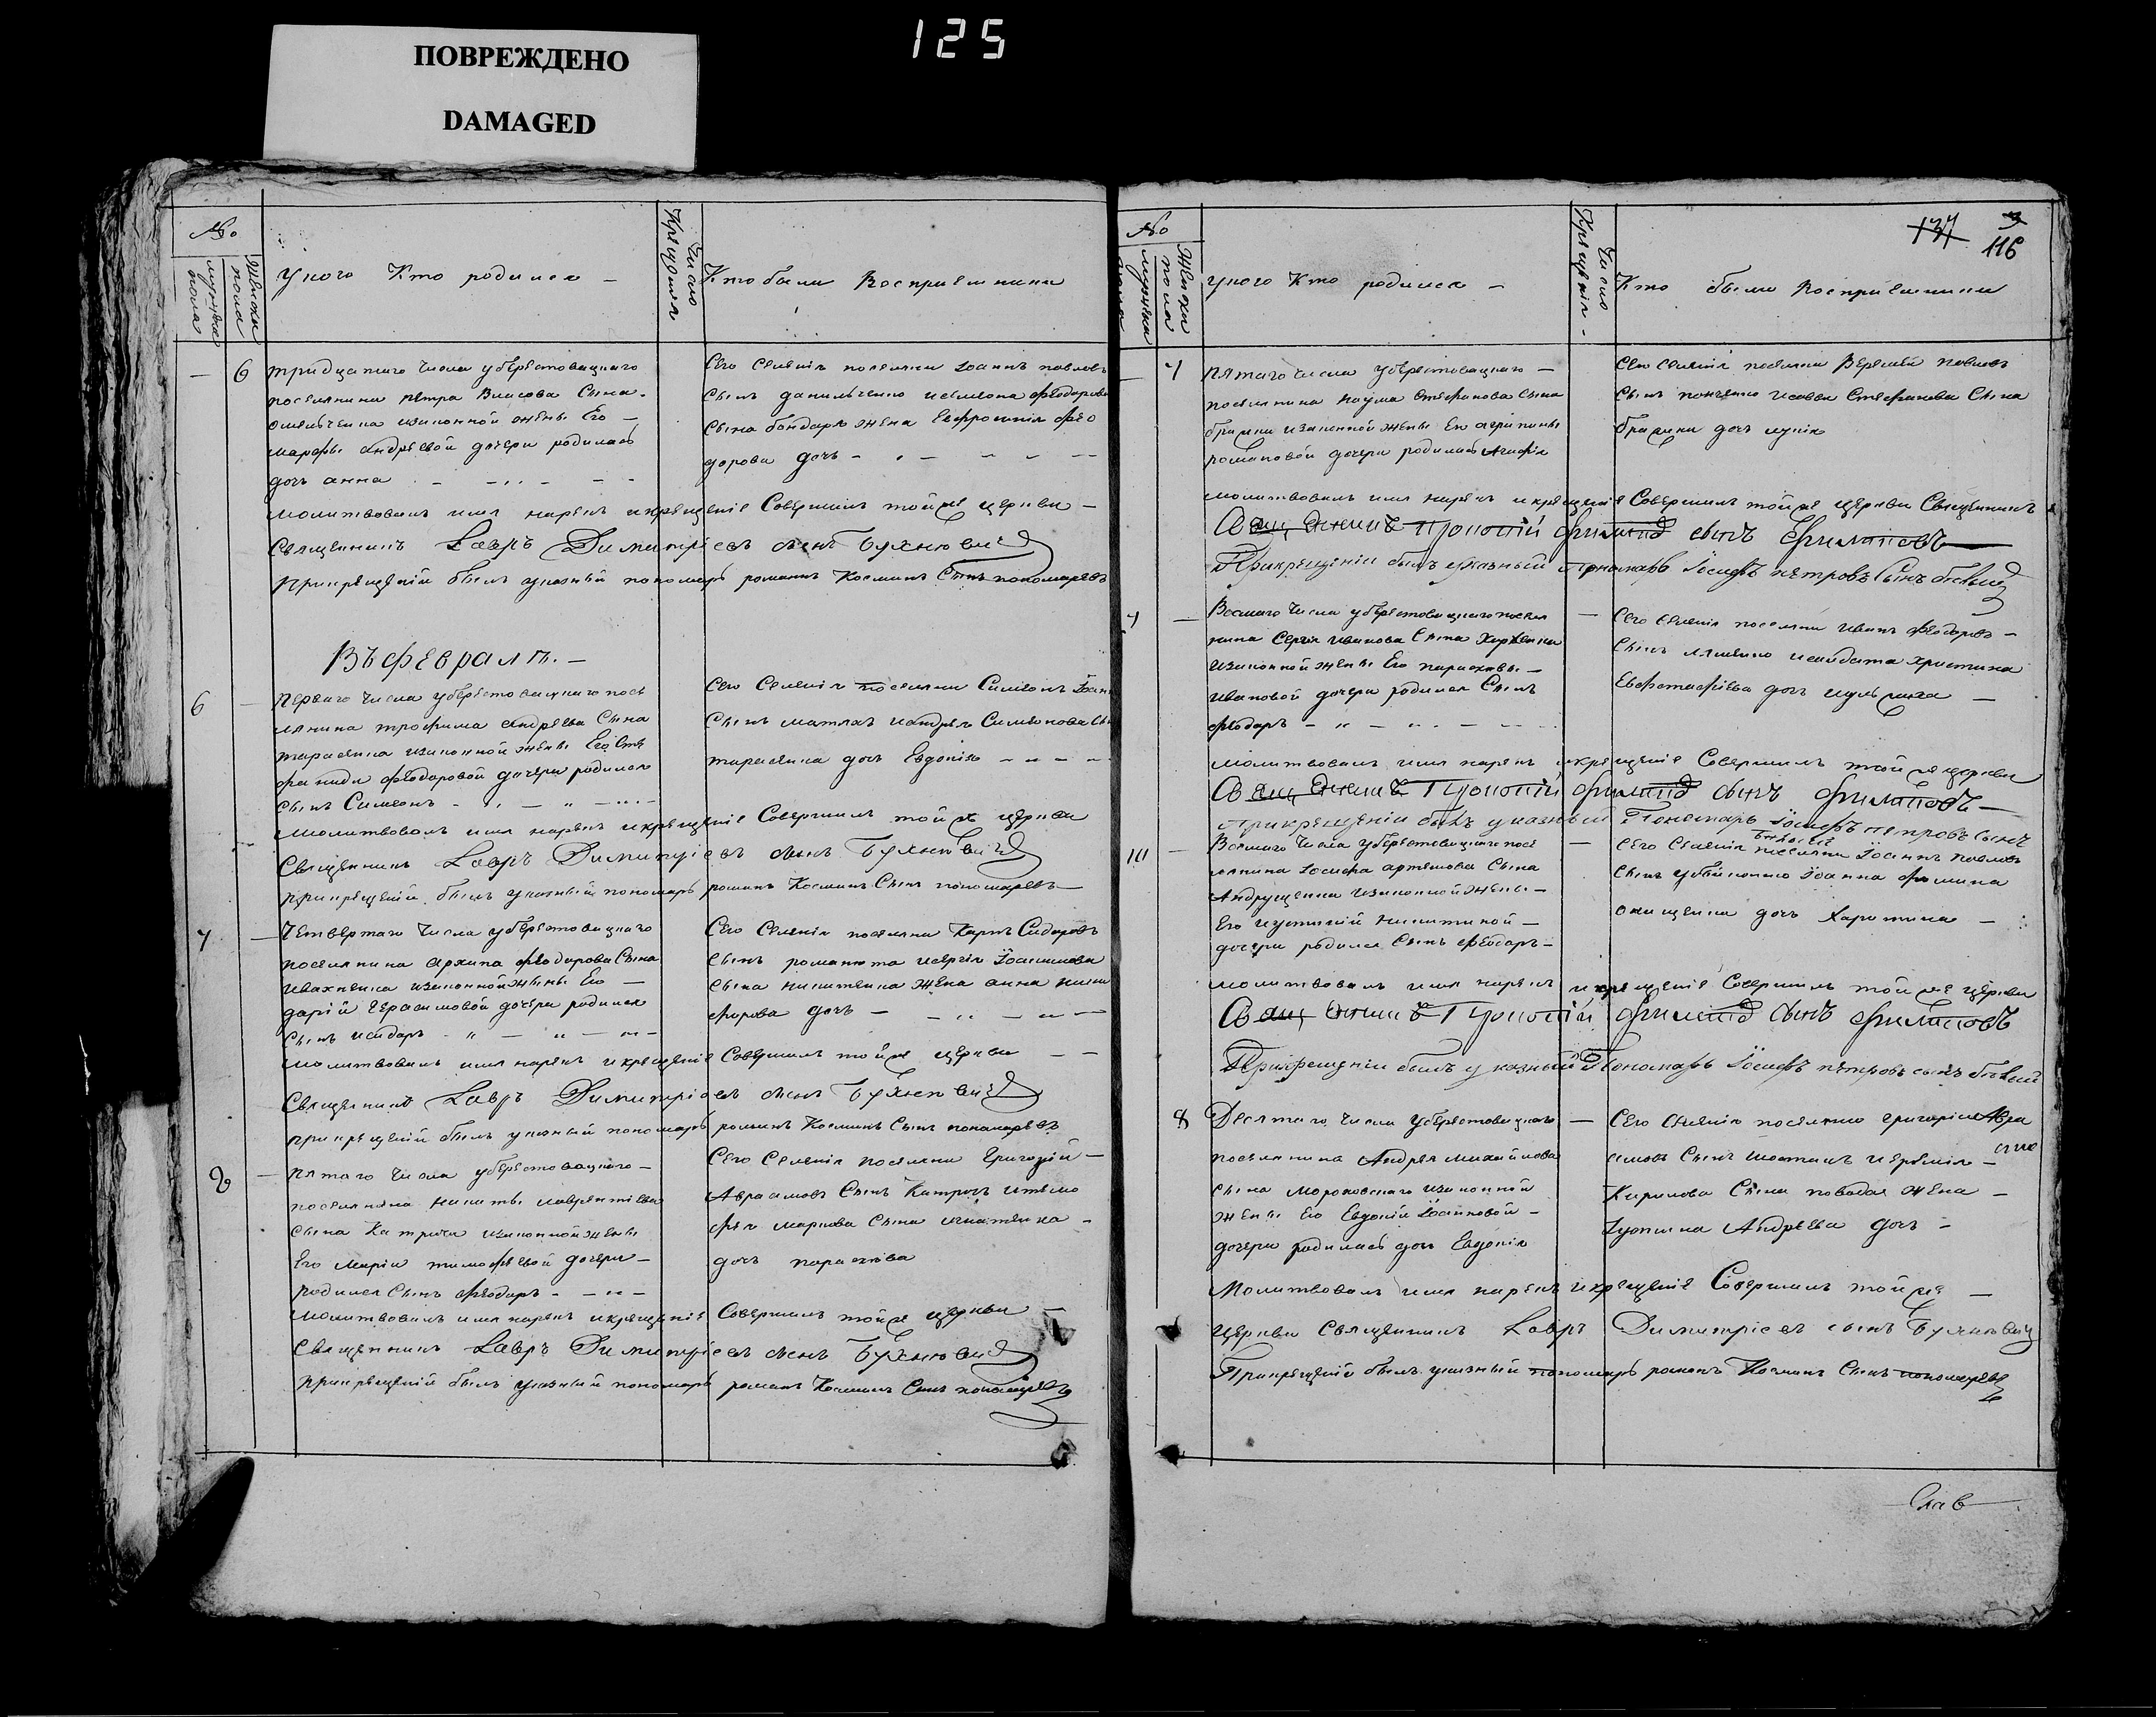 ПОВРЕЖДЕНО
DAMAGED
125
№
мужска пола
женска пола
У кого Кто родился —
Число Крещения
Кто были Восприемники
— 6
тридцатаго числа убрестовацкаго
поселянина петра Власова Сына
изаконной жены Его —
марфы андреевой дочери родилась
дочь анна
Сего Селенія поселяни Іоаннъ павловъ
Сынъ данильченко исимеона феодорова
Сына бондаря жена Евфросинія фео
дорова дочь —
молитвовалъ имя нарекъ икрещеніе Совершилъ тойже церкви —
Священникъ Лавръ Димитріевъ сынъ Бужневичъ
Прикрещеніи былъ указный пономарь романъ Косминъ Сынъ пономаревъ
Въ февралѣ. —
6 —
перваго числа убрестовацкаго посе
лянина трофима андреева Сына
тарасенка изаконной жены Его Сте
фаниды феодоровой дочери родился
Сынъ Симеонъ
Сего Селенія поселяни Симеонъ Іоан
Сынъ матлахъ иандрея Симеонова Сы
тарасенка дочь Евдокія
Молитвовалъ имя нарекъ икрещеніе Совершилъ тойже церкви
Священникъ Лавръ Димитріевъ сынъ Бужневичъ
прикрещеніи былъ указный пономарь романъ Косминъ Сынъ пономаревъ —
7 —
Четвертаго числа убрестовацкаго
поселянина архипа феодорова Сына
ивахненка изаконной жены Его —
даріи Герасимовой дочери родился
Сынъ исидоръ
Сего Селенія поселяни Карпъ Сидоровъ
Сынъ романюта исергія Іоакимова
Сына никитенка жена анна ники
форова дочь —
молитвовалъ имя нарекъ икрещеніе Совершилъ тойже церкви
Священникъ Лавръ Димитріевъ сынъ Бужневичъ
прикрещеніи былъ указный пономарь романъ Косминъ Сынъ пономаревъ
8 —
пятаго числа убрестовацкаго —
поселянина никиты лаврентіева
Сына Катрича изаконной жены
Его маріи тимофѣевой дочери —
родился Сынъ феодоръ
Сего Селенія поселяни Григорій —
Авраамовъ Сынъ Катричъ итимо
фея маркова Сына игнатенка —
дочь параскева
молитвовалъ имя нарекъ икрещеніе Совершилъ тойже церкви —
Священникъ Лавръ Димитріевъ сынъ Бужневичъ
прикрещеніи былъ указный пономарь романъ Косминъ Сынъ пономаревъ
137 3
116
№
мужска пола
Женска пола
У кого Кто родился —
Число Крещенія
Кто были Восприемники
— 7
пятаго числа убрестовацкаго —
поселянина наума Стефанова Сына
бражки изаконной жены Его агрипины
романовой дочери родилась Агафія
Сего Селенія поселяни Веремей павловъ
Сынъ исаввы Стефанова Сына
бражки дочь
молитвовалъ имя нарекъ икрещеніе Совершилъ тойже церкви Священникъ
Священникъ Прокопій Филипповъ сынъ Филиповъ
Прикрещеніи былъ указный Пономарь Іосифъ петровъ Сынъ
9 —
Восмаго числа убрестовацкаго посел
нина Сергія иванова Сына Харченки
изаконной жены Его параскевы —
ивановой дочери родился Сынъ
феодоръ
— Сего Селенія поселяни иванъ феодоровъ —
Сынъ ляшенко христина
Евстафіева дочь —
молитвовалъ имя нарекъ икрещеніе Совершилъ тойже церкви
Священникъ Прокопій Филипповъ сынъ Филиповъ —
Прикрещеніи былъ указный Пономарь Іосифъ петровъ сынъ
10 —
Восмаго числа убрестовацкаго посе
лянина Іосифа артемова Сына
Андрущенка изаконной жены —
Его иустиніи никитиной —
дочери родился Сынъ феодоръ —
— Сего Селенія поселяни Іоаннъ павловъ
Сынъ Іоанна фомина
онищенка дочь Харитина —
молитвовалъ имя нарекъ икрещеніе Совершилъ тойже церкви
Священникъ Прокопій Филипповъ сынъ Филиповъ
Прикрещеніи былъ указный Пономарь Іосифъ петровъ сынъ
8
Десятаго числа убрестовацкаго
поселянина Андрея михайлова
Сына Мороховскаго изаконной
жены Его Евдокіи Іоанновой —
дочери родилась дочь Евдокія
— Сего Селенія поселяни григорій Авра
амовъ Сынъ Шостакъ иеремія —
Кирилова Сына жена —
Іустина Андреева дочь —
Молитвовалъ имя нарекъ икрещеніе Совершилъ тойже —
церкви Священникъ Лавръ Димитріевъ сынъ Бужневичъ
Прикрещеніи былъ указный пономарь романъ Косминъ Сынъ пономаревъ
Слав